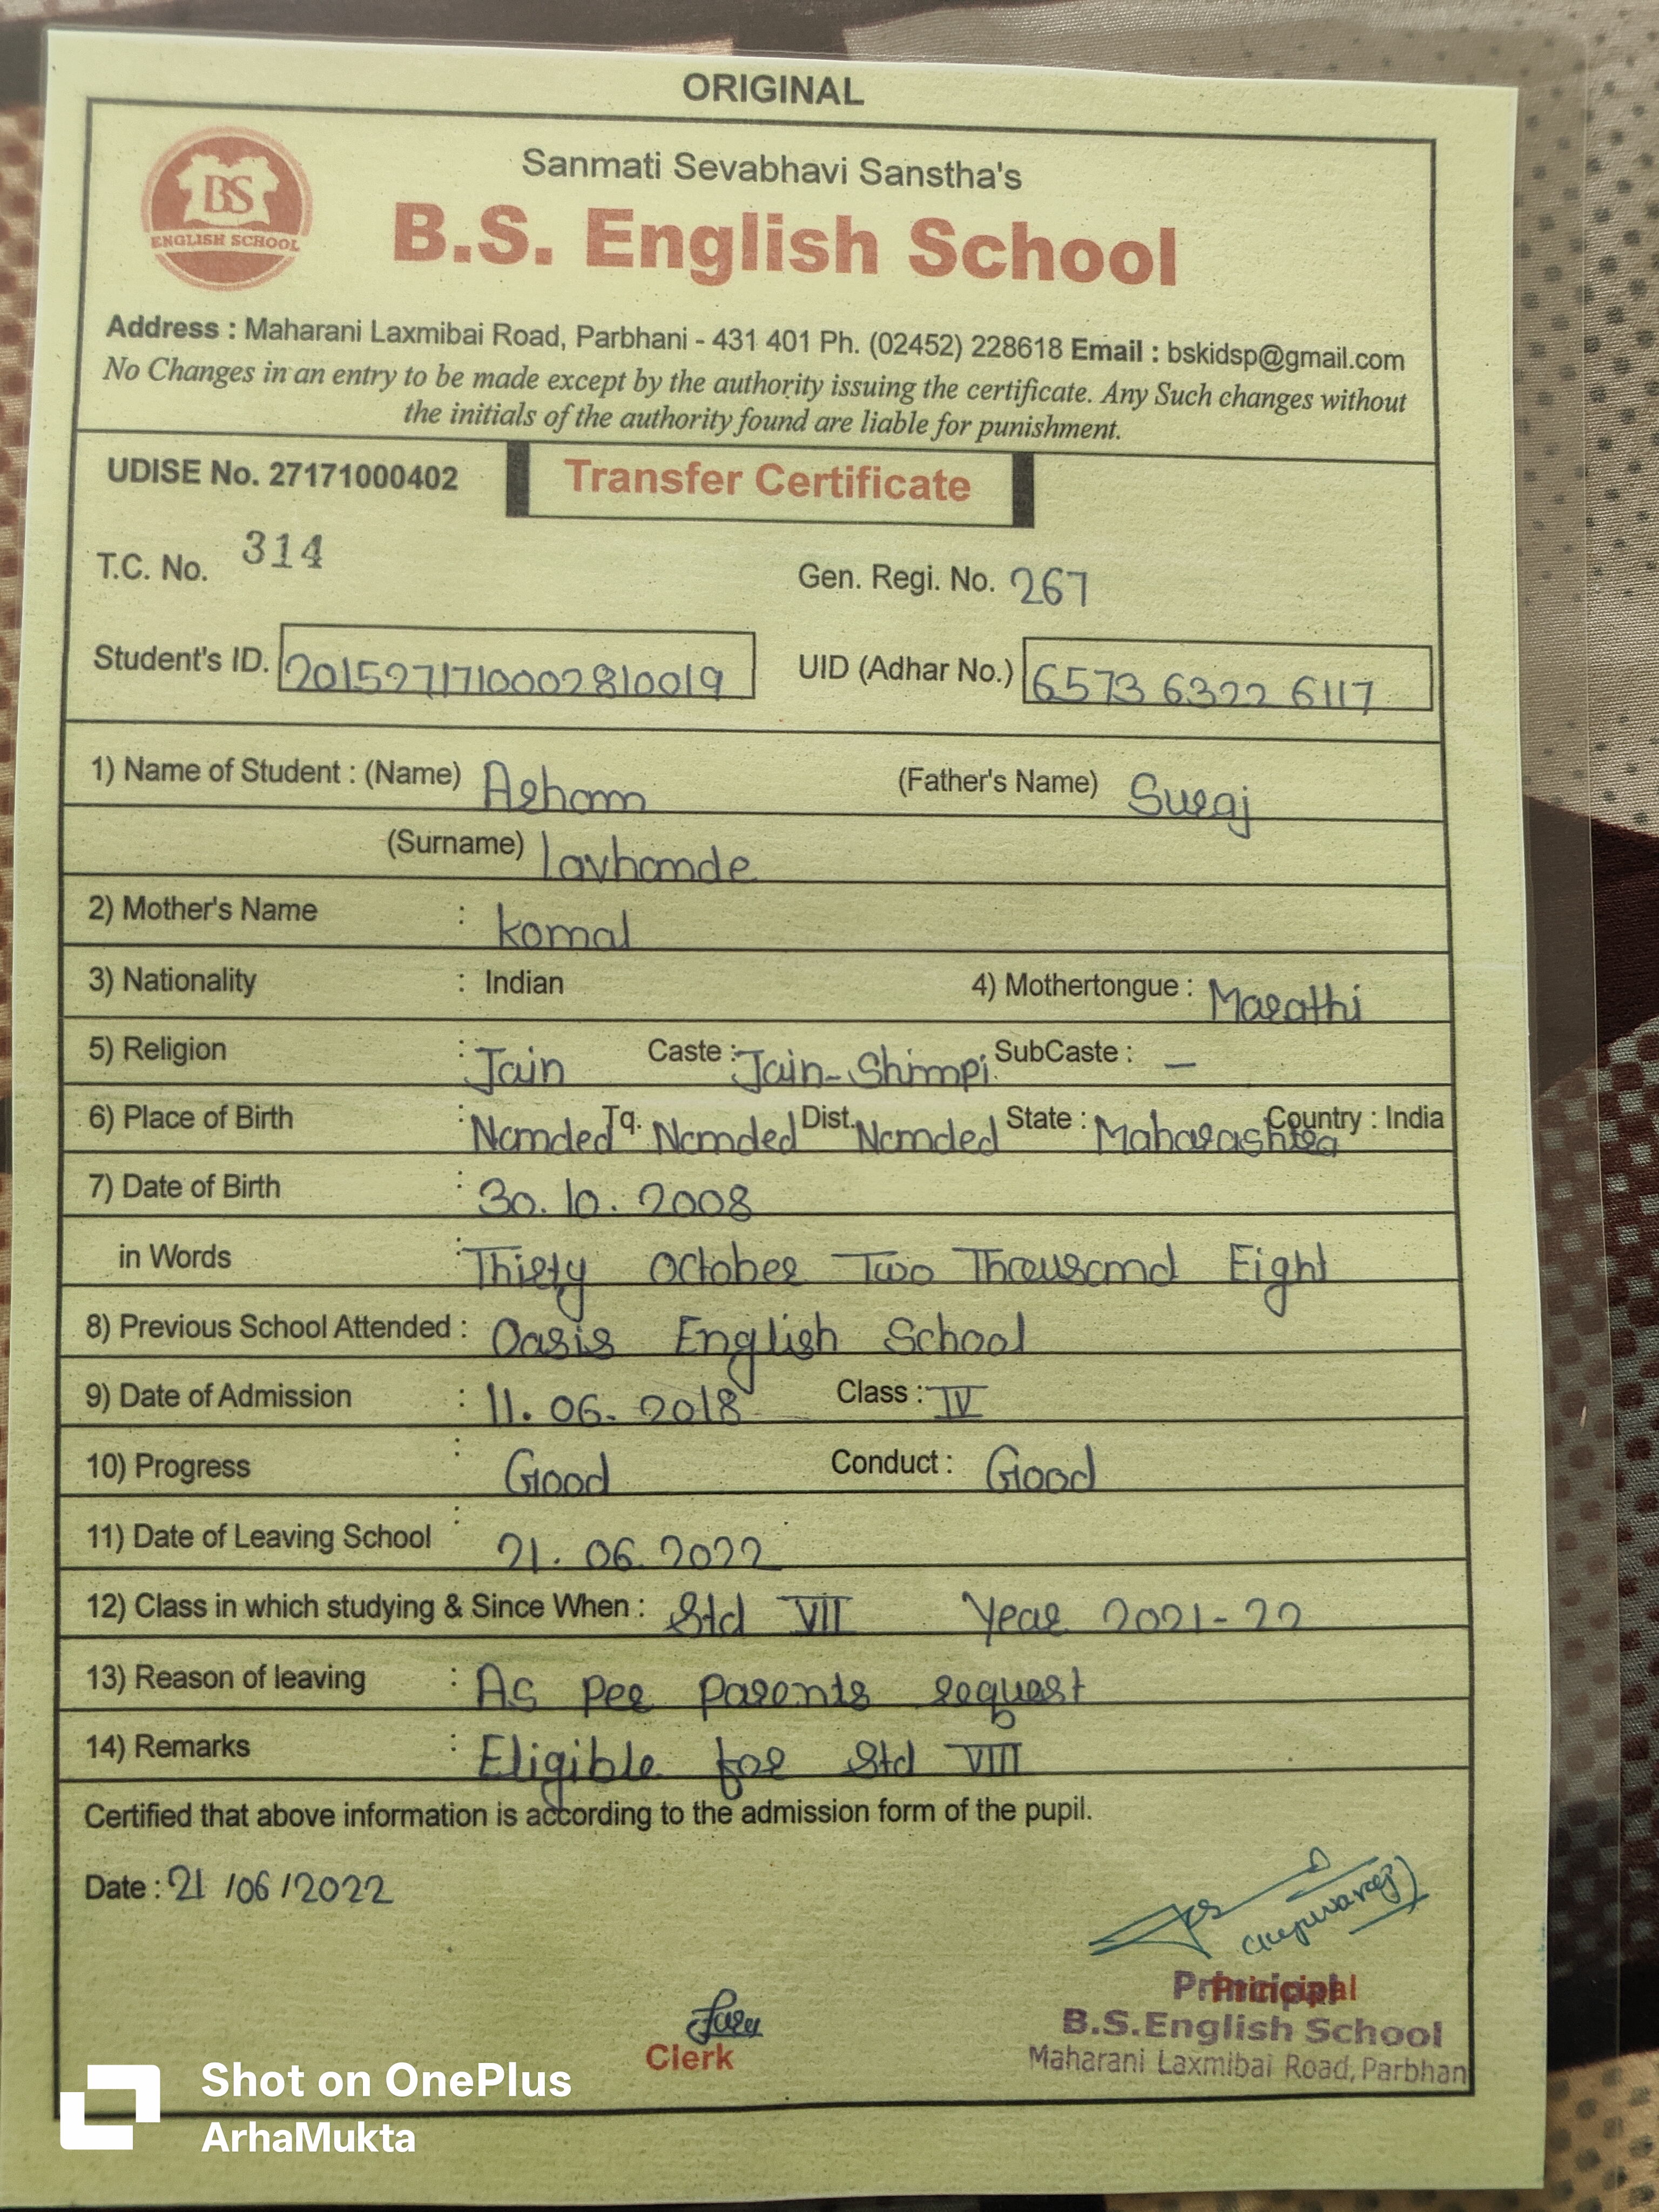 ORIGINAL
BS
ENGLISH SCHOOL
Sanmati Sevabhavi Sanstha's
B.S. English School
Address : Maharani Laxmibai Road, Parbhani - 431 401 Ph. (02452) 228618 Email : bskidsp@gmail.com
No Changes in an entry to be made except by the authority issuing the certificate. Any Such changes without
the initials of the authority found are liable for punishment.
UDISE No. 27171000402 Transfer Certificate
T.C. No. 314 Gen. Regi. No. 267
Student's ID. 2015271710002810019 UID (Adhar No.) 6573 6322 6117
1) Name of Student : (Name) Arham (Father's Name) Suraj
(Surname) lavhande
2) Mother's Name : komal
3) Nationality : Indian 4) Mothertongue : Marathi
5) Religion : Jain Caste : Jain-Shimpi SubCaste : –
6) Place of Birth : Nanded Tq. Nanded Dist. Nanded State : Maharashtra Country : India
7) Date of Birth : 30.10.2008
in Words : Thirty October Two Thousand Eight
8) Previous School Attended : Oasis English School
9) Date of Admission : 11.06.2018 Class : IV
10) Progress : Good Conduct : Good
11) Date of Leaving School : 21.06.2022
12) Class in which studying & Since When : Std VII Year 2021-22
13) Reason of leaving : As per parents request
14) Remarks : Eligible for Std VIII
Certified that above information is according to the admission form of the pupil.
Date : 21/06/2022
Clerk
Principal
Principal
B.S.English School
Maharani Laxmibai Road, Parbhan
Shot on OnePlus
ArhaMukta